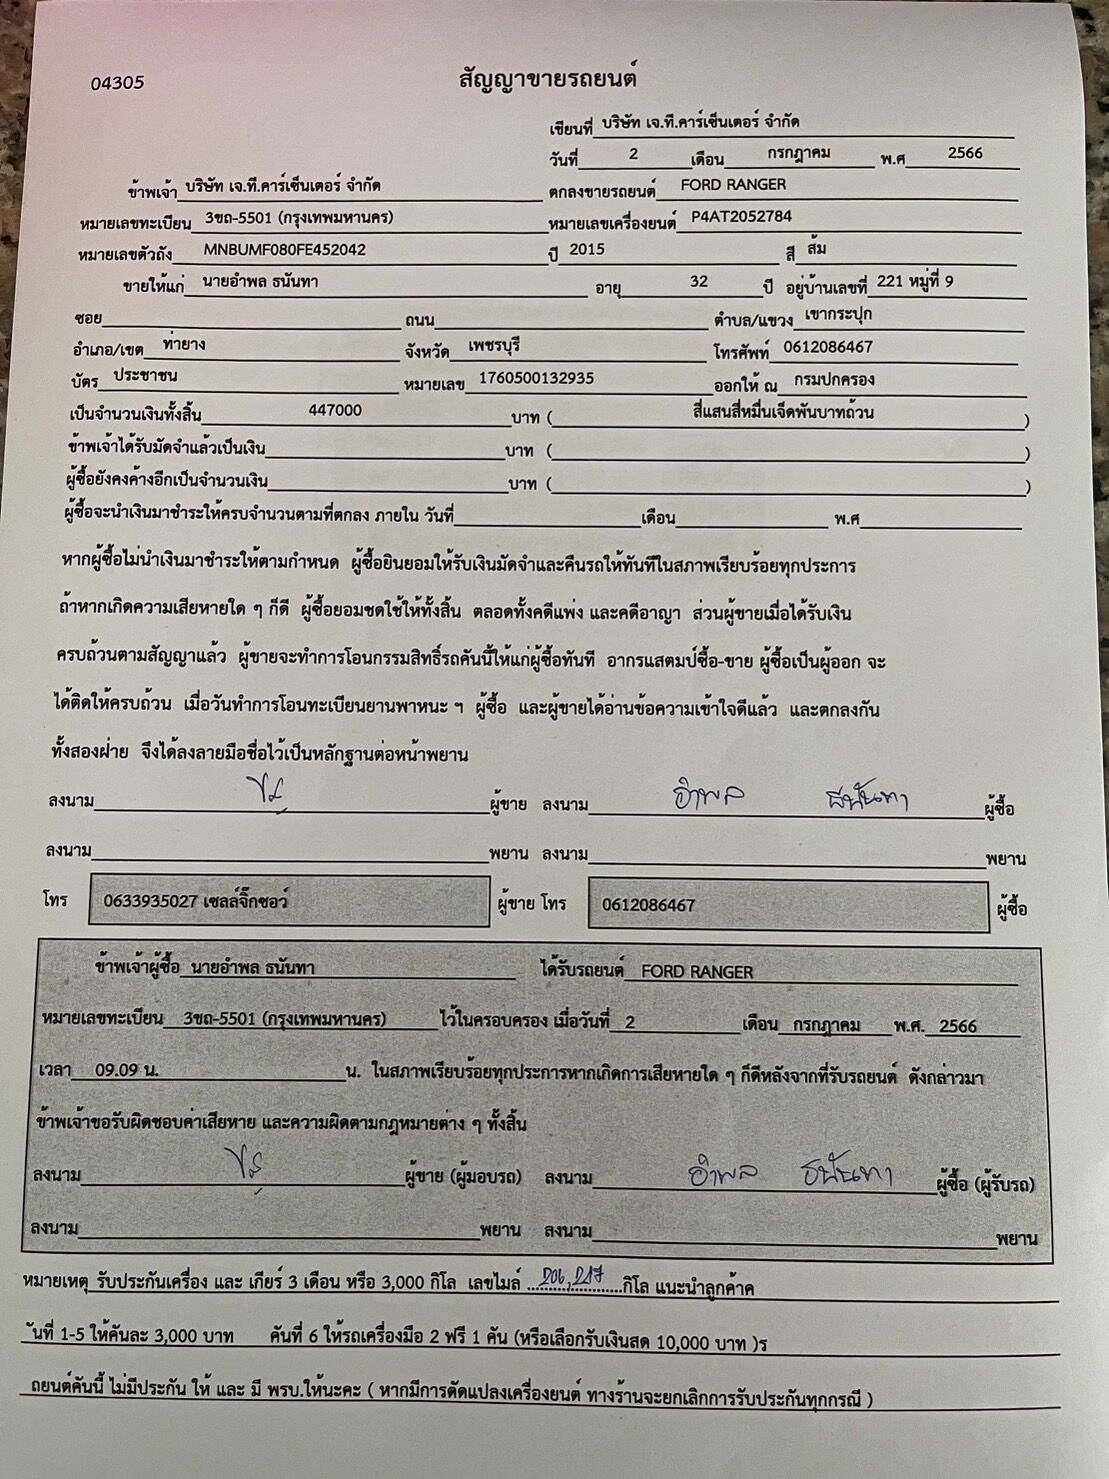 04305
สัญญาขายรถยนต์
เขียนที่ บริษัท เจ.ที.คาร์เซ็นเตอร์ จำกัด
วันที่ 2 เดือน กรกฎาคม พ.ศ 2566
ข้าพเจ้า บริษัท เจ.ที.คาร์เซ็นเตอร์ จำกัด ตกลงขายรถยนต์ FORD RANGER
หมายเลขทะเบียน 3ขถ-5501 (กรุงเทพมหานคร) หมายเลขเครื่องยนต์ P4AT2052784
หมายเลขตัวถัง MNBUMF080FE452042 ปี 2015 สี ส้ม
ขายให้แก่ นายอำพล ธนันทา อายุ 32 ปี อยู่บ้านเลขที่ 221 หมู่ที่ 9
ซอย ถนน ตำบล/แขวง เขากระปุก
อำเภอ/เขต ท่ายาง จังหวัด เพชรบุรี โทรศัพท์ 0612086467
บัตร ประชาชน หมายเลข 1760500132935 ออกให้ ณ กรมปกครอง
เป็นจำนวนเงินทั้งสิ้น 447000 บาท ( สี่แสนสี่หมื่นเจ็ดพันบาทถ้วน )
ข้าพเจ้าได้รับมัดจำแล้วเป็นเงิน บาท ( )
ผู้ซื้อยังคงค้างอีกเป็นจำนวนเงิน บาท ( )
ผู้ซื้อจะนำเงินมาชำระให้ครบจำนวนตามที่ตกลง ภายใน วันที่ เดือน พ.ศ
หากผู้ซื้อไม่นำเงินมาชำระให้ตามกำหนด ผู้ซื้อยินยอมให้รับเงินมัดจำและคืนรถให้ทันทีในสภาพเรียบร้อยทุกประการ
ถ้าหากเกิดความเสียหายใด ๆ ก็ดี ผู้ซื้อยอมชดใช้ให้ทั้งสิ้น ตลอดทั้งคดีแพ่ง และคดีอาญา ส่วนผู้ขายเมื่อได้รับเงิน
ครบถ้วนตามสัญญาแล้ว ผู้ขายจะทำการโอนกรรมสิทธิ์รถคันนี้ให้แก่ผู้ซื้อทันที อากรแสตมป์ซื้อ-ขาย ผู้ซื้อเป็นผู้ออก จะ
ได้ติดให้ครบถ้วน เมื่อวันทำการโอนทะเบียนยานพาหนะ ฯ ผู้ซื้อ และผู้ขายได้อ่านข้อความเข้าใจดีแล้ว และตกลงกัน
ทั้งสองฝ่าย จึงได้ลงลายมือชื่อไว้เป็นหลักฐานต่อหน้าพยาน
ลงนาม ผู้ขาย ลงนาม อำพล ธนันทา ผู้ซื้อ
ลงนาม พยาน ลงนาม พยาน
โทร 0633935027 เซลล์จิ๊กซอว์ ผู้ขาย โทร 0612086467 ผู้ซื้อ
ข้าพเจ้าผู้ซื้อ นายอำพล ธนันทา ได้รับรถยนต์ FORD RANGER
หมายเลขทะเบียน 3ขถ-5501 (กรุงเทพมหานคร) ไว้ในครอบครอง เมื่อวันที่ 2 เดือน กรกฎาคม พ.ศ. 2566
เวลา 09.09 น. น. ในสภาพเรียบร้อยทุกประการหากเกิดการเสียหายใด ๆ ก็ดีหลังจากที่รับรถยนต์ ดังกล่าวมา
ข้าพเจ้าขอรับผิดชอบค่าเสียหาย และความผิดตามกฎหมายต่าง ๆ ทั้งสิ้น
ลงนาม ผู้ขาย (ผู้มอบรถ) ลงนาม อำพล ธนันทา ผู้ซื้อ (ผู้รับรถ)
ลงนาม พยาน ลงนาม พยาน
หมายเหตุ รับประกันเครื่อง และ เกียร์ 3 เดือน หรือ 3,000 กิโล เลขไมล์ 206,217 กิโล แนะนำลูกค้าค
ันที่ 1-5 ให้คันละ 3,000 บาท คันที่ 6 ให้รถเครื่องมือ 2 ฟรี 1 คัน (หรือเลือกรับเงินสด 10,000 บาท )ร
ถยนต์คันนี้ ไม่มีประกัน ให้ และ มี พรบ.ให้นะคะ ( หากมีการดัดแปลงเครื่องยนต์ ทางร้านจะยกเลิกการรับประกันทุกกรณี )